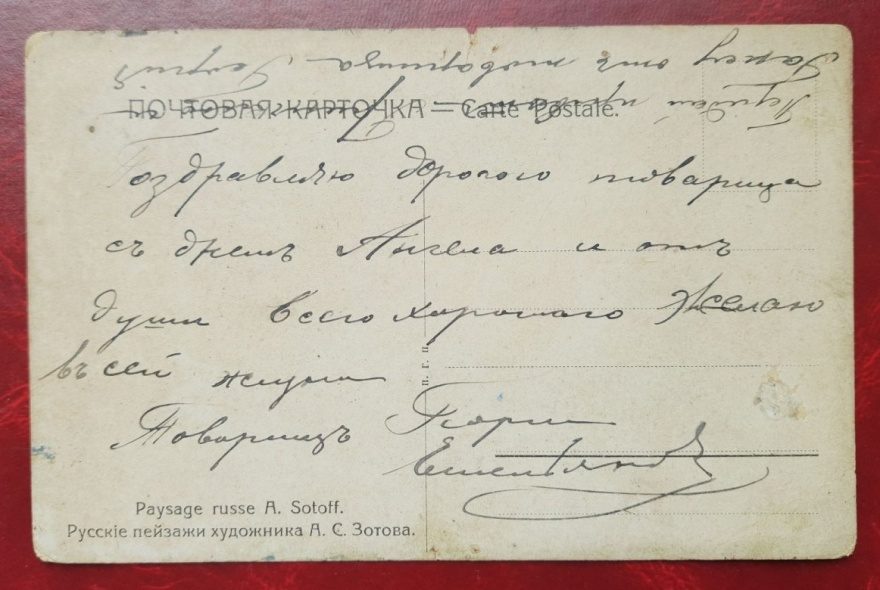 ПОЧТОВАЯ КАРТОЧКА = Carte Postale.
Поздравляю дорогого товарища
съ днемъ Ангела и отъ
души всего хорошаго желаю
въ сей жизни
Товарищъ Георги
Емельяновъ
П. Г. П.
Paysage russe A. Sotoff.
Русскіе пейзажи художника А. С. Зотова.
отъ товарища